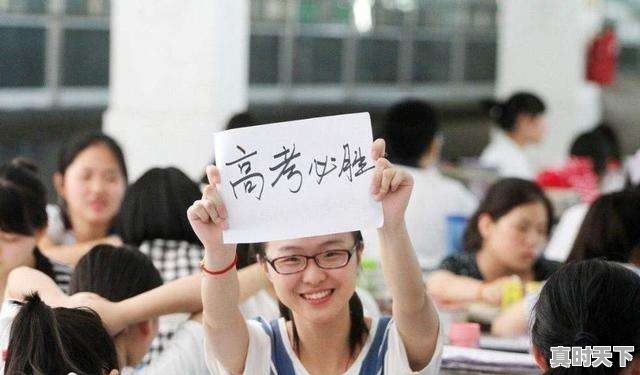 高考必胜
真时天下